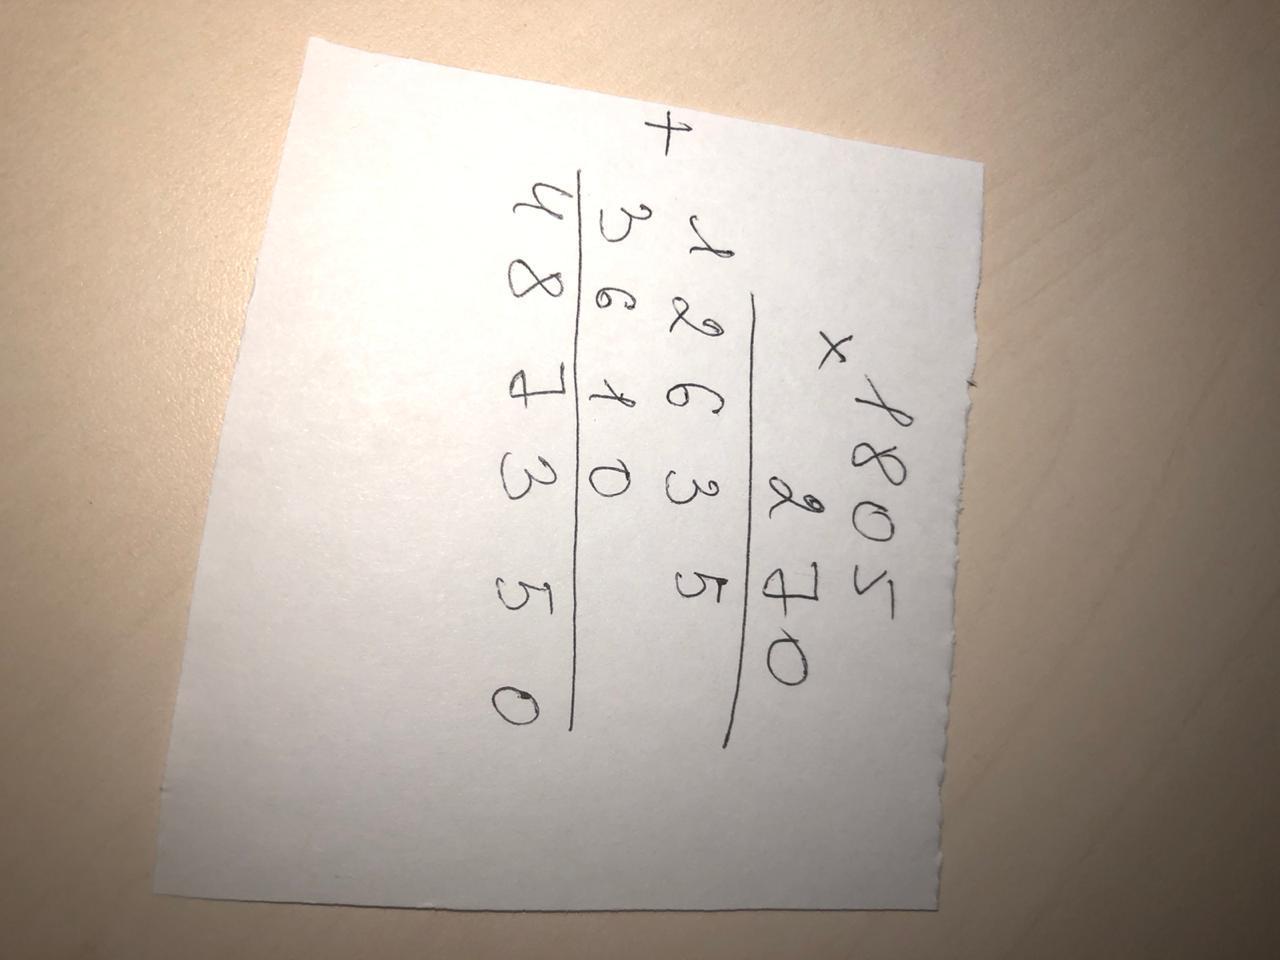 × 1805
270
+ 12635
3610
487350